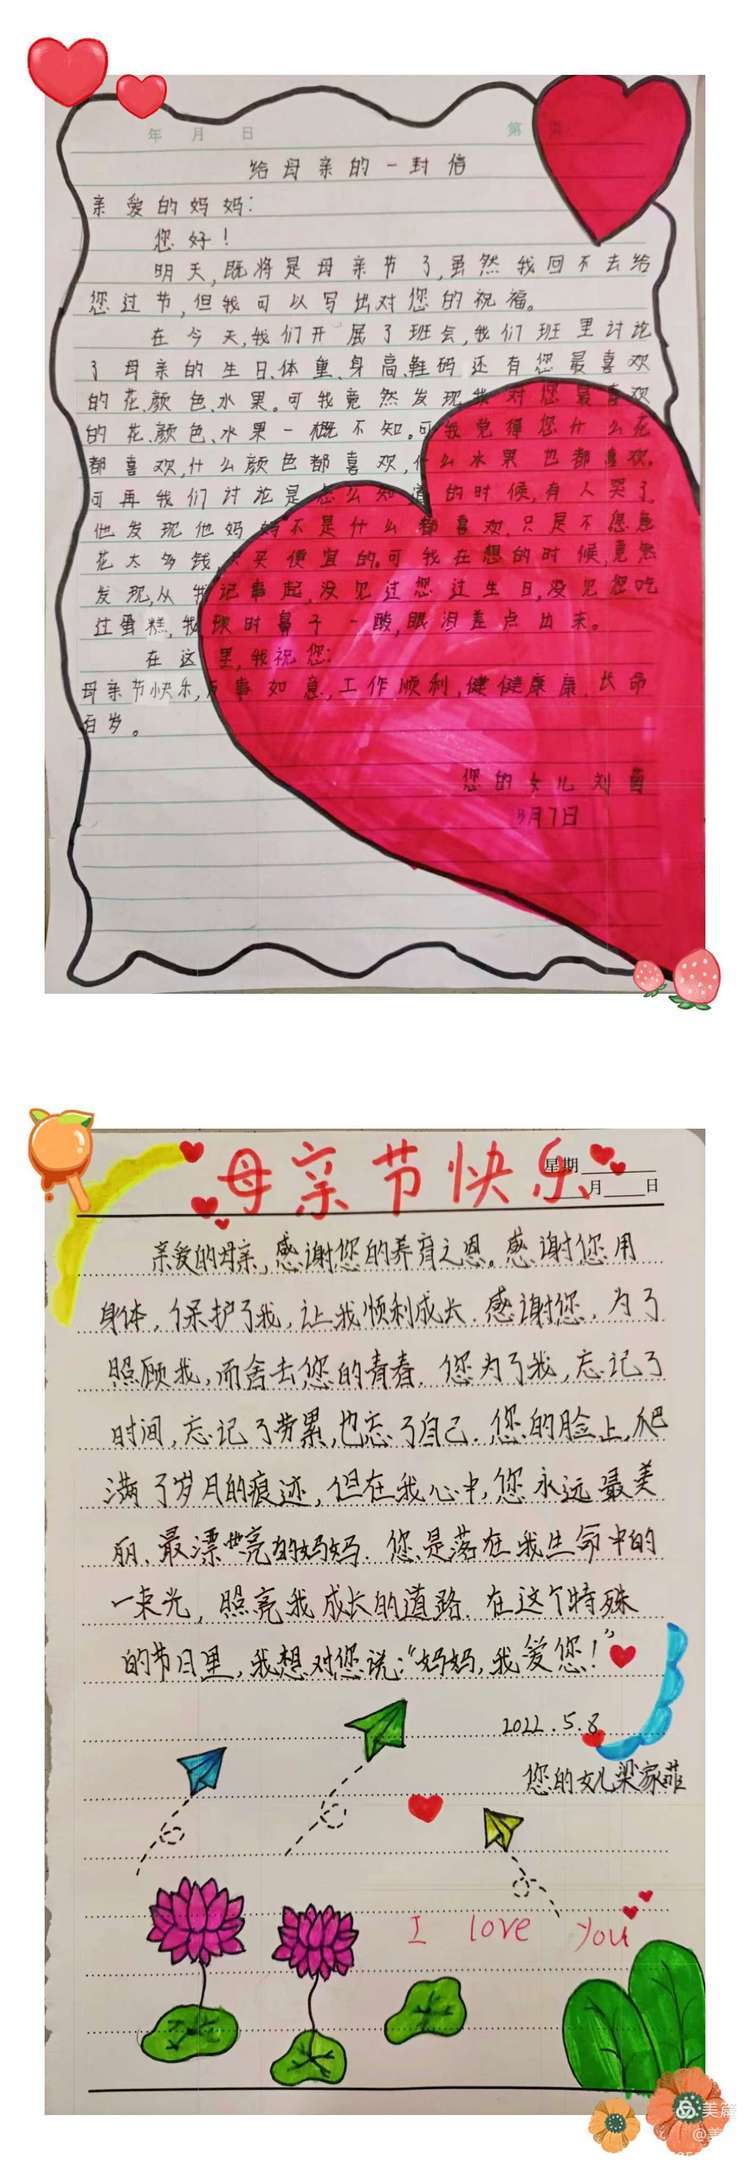 年 月 日 第 页
给母亲的一封信
亲爱的妈妈:
您好!
明天,既将是母亲节了,虽然我回不去给
您过节,但我可以写出对您的祝福。
在今天,我们开展了班会,我们班里讨论
了母亲的生日、体重、身高、鞋码还有您最喜欢
的花、颜色、水果。可我竟然发现我对您最喜欢
的花、颜色、水果一概不知。可我觉得您什么花
都喜欢,什么颜色都喜欢,什么水果也都喜欢。
可再我们讨论是怎么知道的时候,有人哭了,
他发现他妈妈不是什么都喜欢,只是不想意
花太多钱,只买便宜的。可我在想的时候,竟然
发现,从我记事起,没见过您过生日,没见您吃
过蛋糕,我顿时鼻子一酸,眼泪差点出来。
在这里,我祝您:
母亲节快乐,万事如意,工作顺利,健健康康,长命
百岁。
您的女儿刘
5月7日
母亲节快乐
星期
月 日
亲爱的母亲,感谢您的养育之恩。感谢您用
身体,保护了我,让我顺利成长.感谢您,为了
照顾我,而舍去您的青春.您为了我,忘记了
时间,忘记了劳累,也忘了自己.您的脸上,爬
满了岁月的痕迹,但在我心中,您永远最美
丽、最漂亮的妈妈.您是落在我生命中的
一束光,照亮我成长的道路.在这个特殊
的节日里,我想对您说:“妈妈,我爱您!”
2022.5.8
您的女儿梁家菲
I love you
美篇